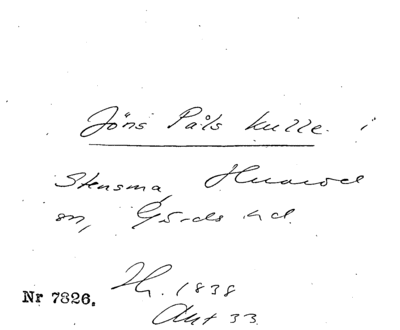 Jöns Påls kulle i
Stensma, Huaröd
sn, Gärds hd.
Nr 7826.
1838
Akt 33